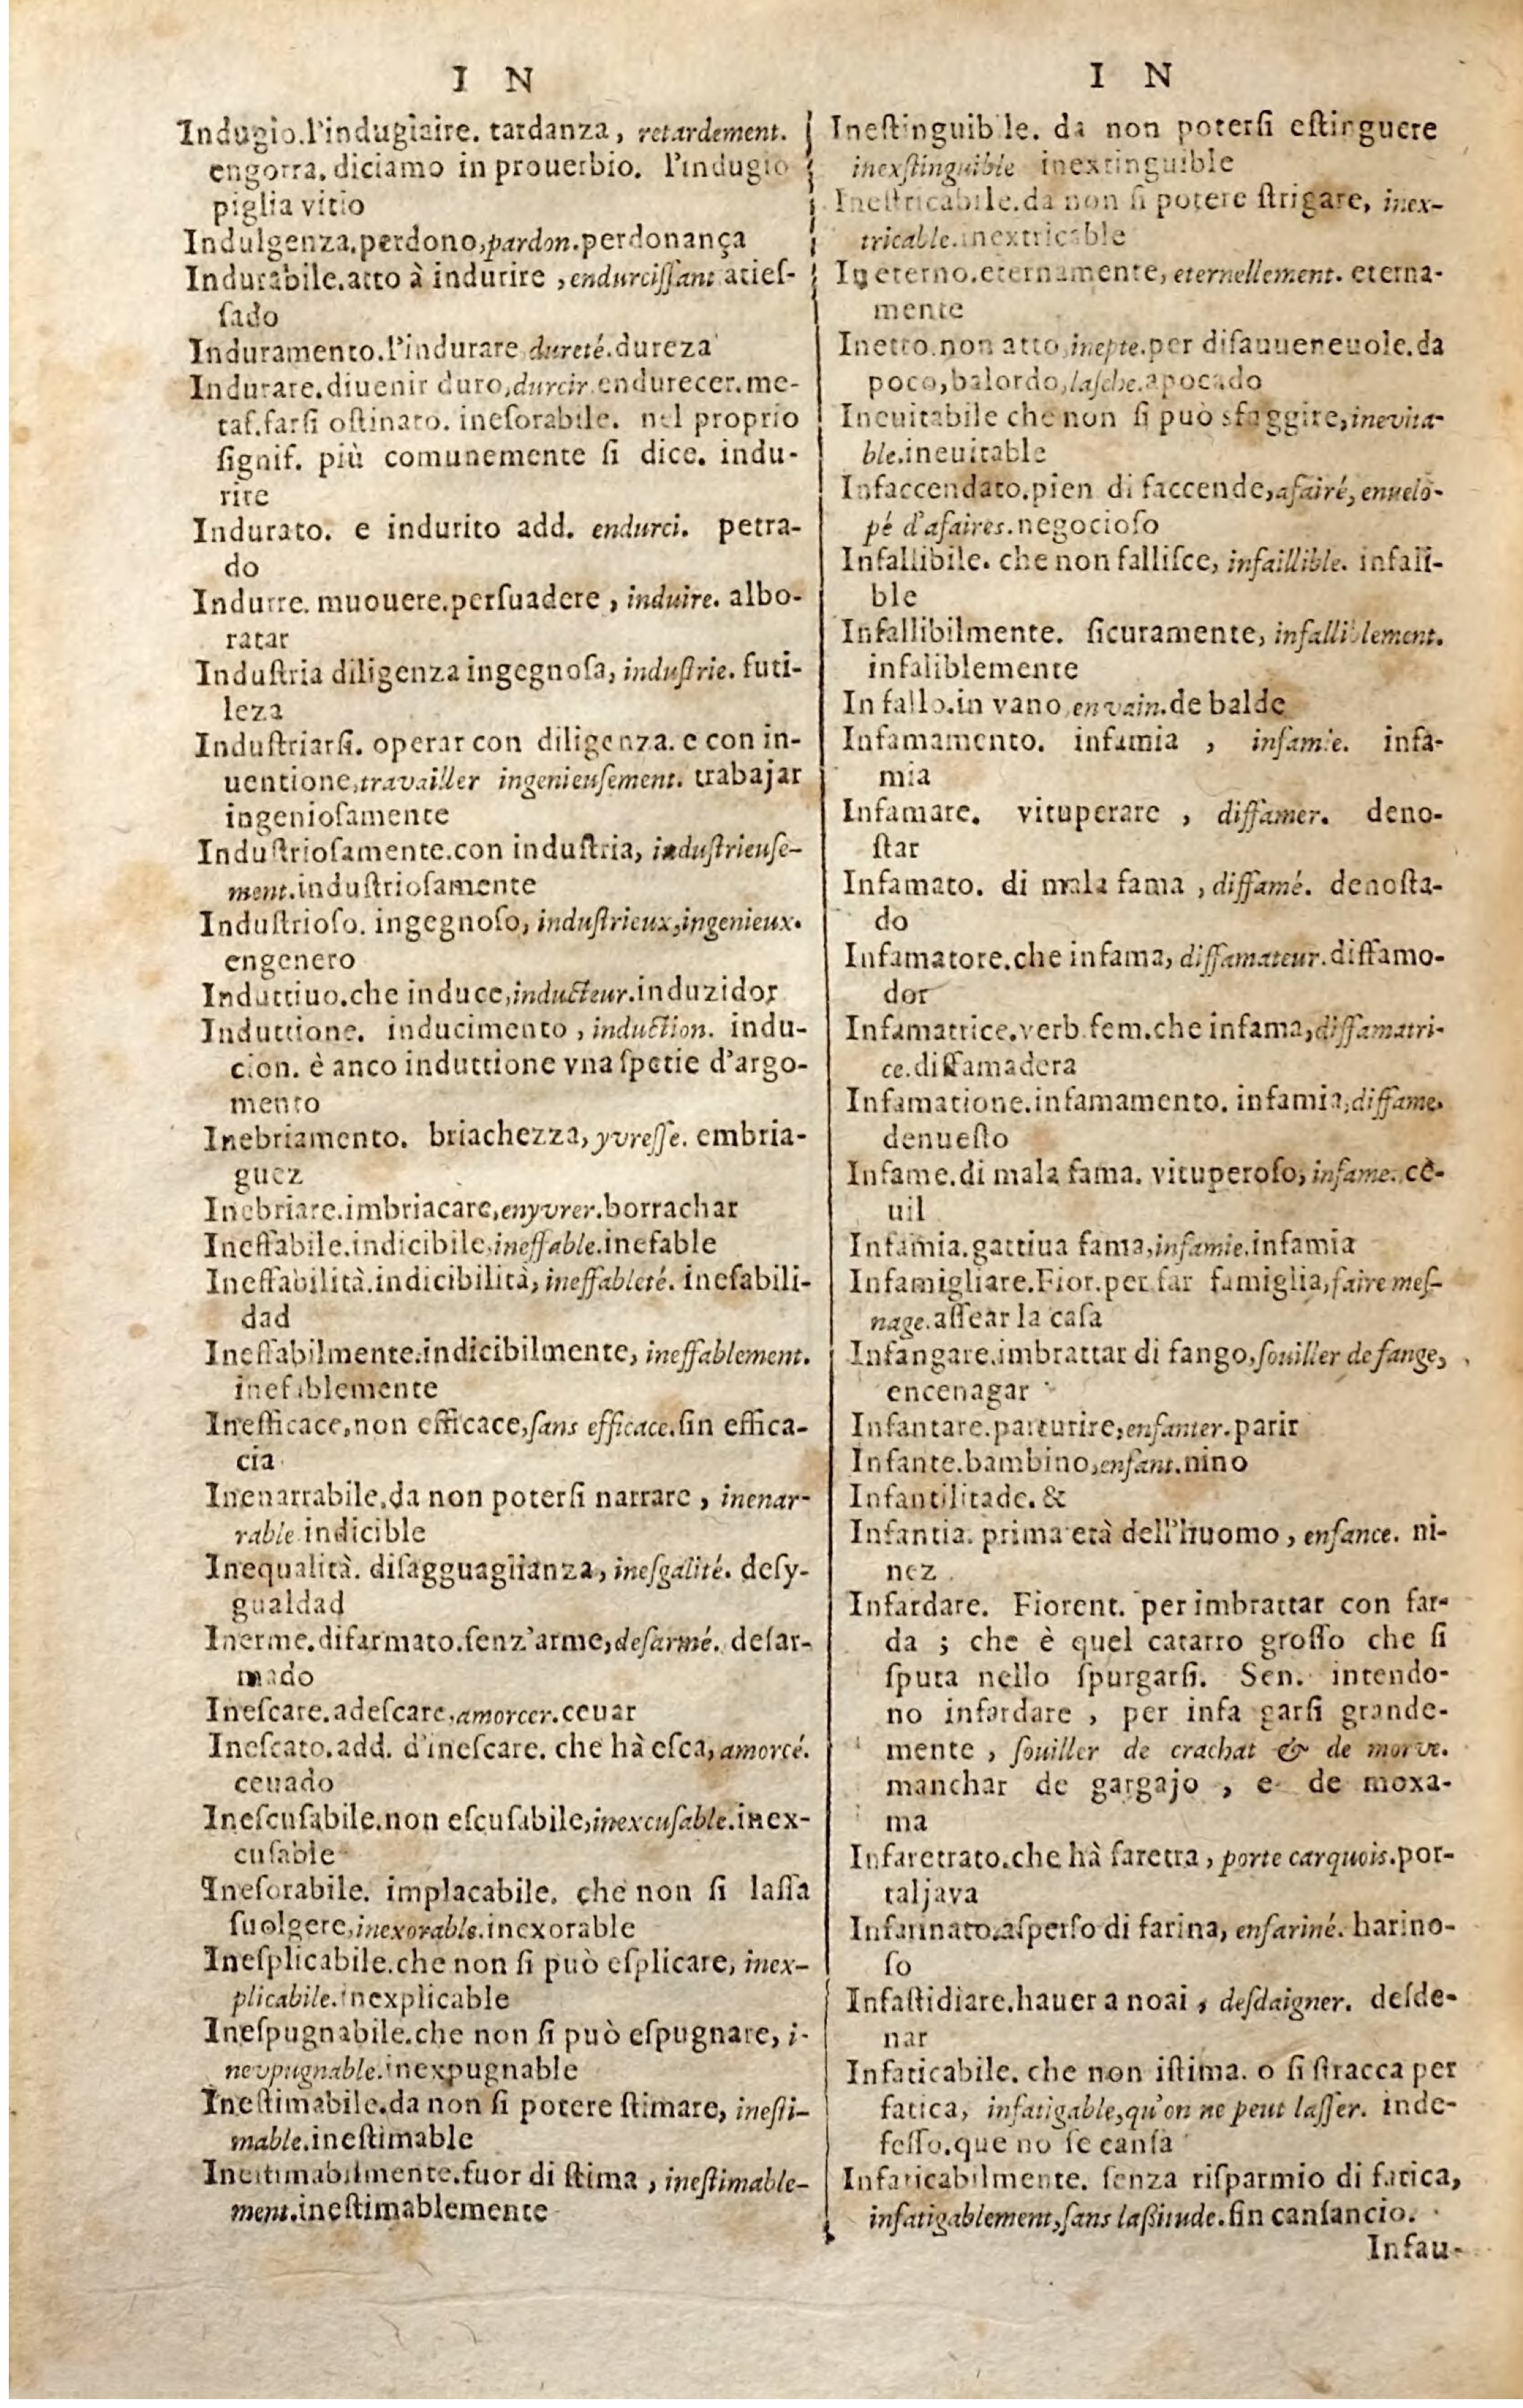 I N
Indugio.l'indugiaire. tardanza, retardement.
engorra. diciamo in prouerbio. l'indugio
piglia vitio
Indulgenza.perdono,pardon.perdonança
Indurabile.atto à indurire ,endurciſſant atieſ-
ſado
Induramento.l'indurare dureté.dureza
Indurare.diuenir duro,durcir.endurecer.me-
taf.farſi oſtinato. ineſorabile. nel proprio
ſignif. più comunemente ſi dice. indu-
rire
Indurato. e indurito add. endurci. petra-
do
Indurre. muouere.perſuadere , induire. albo-
ratar
Induſtria diligenza ingegnoſa, induſtrie. ſuti-
leza
Induſtriarſi. operar con diligenza. e con in-
uentione,travailler ingenieuſement. trabajar
ingenioſamente
Induſtrioſamente.con induſtria, induſtrieuſe-
ment.induſtrioſamente
Induſtrioſo. ingegnoſo, induſtrieux,ingenieux.
engenero
Induttiuo.che induce,inducteur.induzidor
Induttione. inducimento , induction. indu-
cion. è anco induttione vna ſpetie d'argo-
mento
Inebriamento. briachezza, yvreſſe. embria-
guez
Inebriare.imbriacare,enyvrer.borrachar
Ineffabile.indicibile,ineffable.inefable
Ineffabilità.indicibilità, ineffableté. inefabili-
dad
Ineffabilmente.indicibilmente, ineffablement.
inefablemente
Inefficace,non efficace,ſans efficace.ſin effica-
cia
Inenarrabile.da non poterſi narrare , inenar-
rable indicible
Inequalità. diſagguaglianza, ineſgalité. deſy-
gualdad
Inerme.diſarmato.ſenz'arme,deſarmé. deſar-
mado
Ineſcare.adeſcare,amorcer.ceuar
Ineſcato.add. d'ineſcare. che hà eſca, amorcé.
ceuado
Ineſcuſabile.non eſcuſabile,inexcuſable.inex-
cuſable
Ineſorabile. implacabile. che non ſi laſſa
ſuolgere,inexorable.inexorable
Ineſplicabile.che non ſi può eſplicare, inex-
plicabile.inexplicable
Ineſpugnabile.che non ſi può eſpugnare, i-
nevpugnable.inexpugnable
Ineſtimabile.da non ſi potere ſtimare, ineſti-
mable.ineſtimable
Ineſtimabilmente.fuor di ſtima , ineſtimable-
ment.ineſtimablemente
I N
Ineſtinguibile. da non poterſi eſtinguere
inexſtinguible inextinguible
Ineſtricabile.da non ſi potere ſtrigare, inex-
tricable.inextricable
In eterno.eternamente, eternellement. eterna-
mente
Inetto.non atto,inepte.per diſauueneuole.da
poco,balordo,laſche.apocado
Ineuitabile che non ſi può sfuggire,inevita-
ble.ineuitable
Infaccendato.pien di faccende,afairé, enuelo-
pé d'afaires.negocioſo
Infallibile. che non falliſce, infaillible. infali-
ble
Infallibilmente. ſicuramente, infalliblement.
infaliblemente
In fallo.in vano en vain.de balde
Infamamento. infamia , infamie. infa-
mia
Infamare. vituperare , diffamer. deno-
ſtar
Infamato. di mala fama , diffamé. denoſta-
do
Infamatore.che infama, diffamateur.diffamo-
dor
Infamatrice.verb fem.che infama,diffamatri-
ce.diffamadera
Infamatione.infamamento. infamia,diffame.
denueſto
Infame.di mala fama. vituperoſo, infame. cê-
uil
Infamia.gattiua fama,infamie.infamia
Infamigliare.Fior.per far famiglia,faire meſ-
nage.aſſear la caſa
Infangare.imbrattar di fango,ſouiller de fange,
encenagar
Infantare.parturire,enfanter.parir
Infante.bambino,enfant.nino
Infantilitade. &
Infantia. prima età dell'huomo , enfance. ni-
nez
Infardare. Fiorent. per imbrattar con far-
da ; che è quel catarro groſſo che ſi
ſputa nello ſpurgarſi. Sen. intendo-
no infardare , per infa garſi grande-
mente , ſouiller de crachat & de morve.
manchar de gargajo , e de moxa-
ma
Infaretrato.che hà faretra , porte carquois.por-
taljava
Infarinato.aſperſo di farina, enfariné. harino-
ſo
Infaſtidiare.hauer a noai , deſdaigner. deſde-
nar
Infaticabile. che non iſtima. o ſi ſtracca per
fatica, infatigable,qu'on ne peut laſſer. inde-
feſſo.que no ſe canſa
Infaticabilmente. ſenza riſparmio di fatica,
infatigablement,ſans laßitude.ſin canſancio.
Infau-